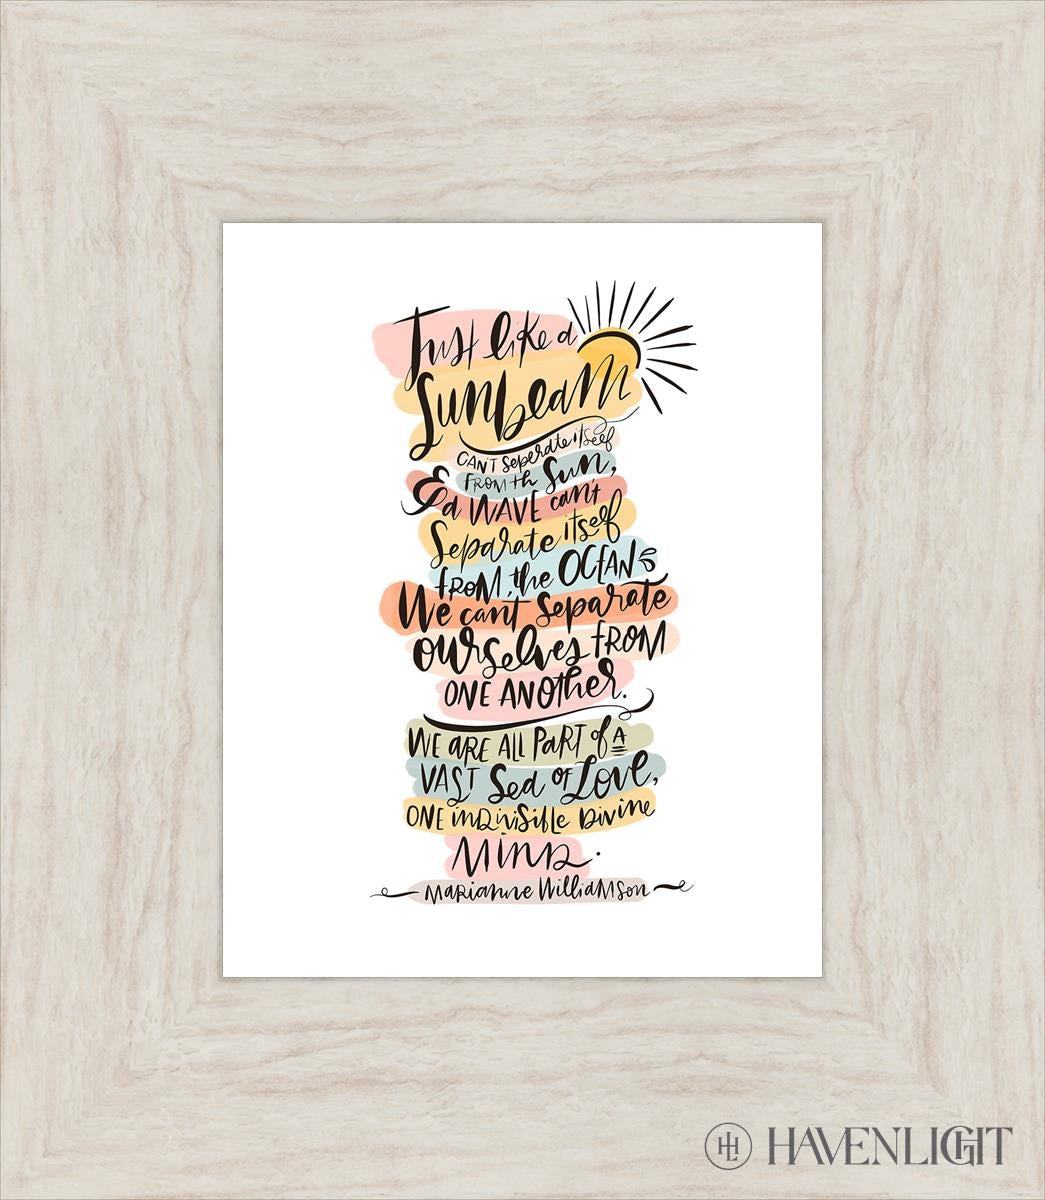 Just like a
Sunbeam
CAN'T Seperate itself
FROM th Sun,
& a WAVE can't
Separate itself
FROM the OCEAN
We can't Separate
OURselves FROM
ONE ANOther.
WE ARE All PART of A
VAST Sea OF LOVE,
ONE inDiViSible DiVine
MinD.
MARiAnne WilliAMSon
HL HAVENLIGHT